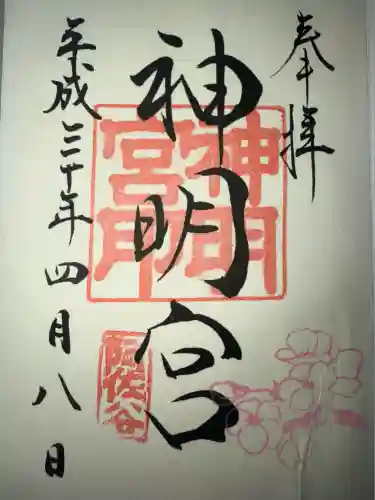 奉拝
神明宮
神明宮
阿佐谷
平成三十年四月八日